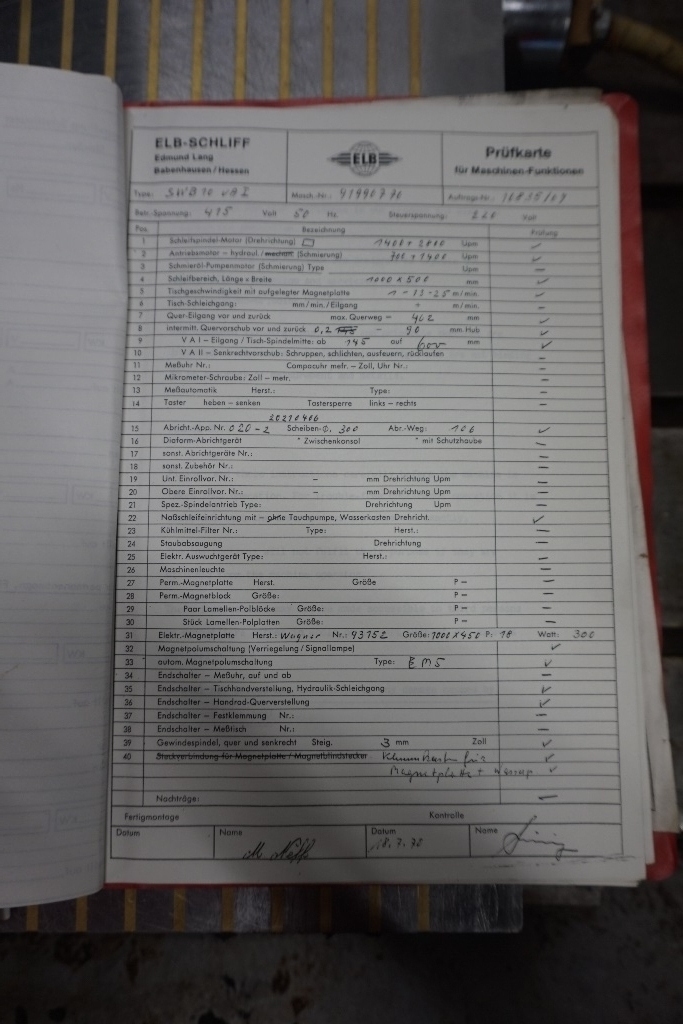 ELB-SCHLIFF
Edmund Lang
Babenhausen / Hessen
ELB
Prüfkarte
für Maschinen-Funktionen
Type: SWB 10 VAI Masch.-Nr.: Auftrags-Nr.:
Betr.-Spannung: 415 Volt 50 Hz. Steuerspannung: 220 Volt
Pos. Bezeichnung Prüfung
1 Schleifspindel-Motor (Drehrichtung) 1400 + 2800 Upm
2 Antriebsmotor – hydraul./mechan. (Schmierung) 700 + 1400 Upm
3 Schmieröl-Pumpenmotor (Schmierung) Type Upm
4 Schleifbereich, Länge × Breite 1000 x 500 mm
5 Tischgeschwindigkeit mit aufgelegter Magnetplatte m/min.
6 Tisch-Schleichgang: mm/min./Eilgang m/min.
7 Quer-Eilgang vor und zurück max. Querweg – 462 mm
8 intermitt. Quervorschub vor und zurück 0,2 – 90 mm Hub
9 V A I – Eilgang / Tisch-Spindelmitte: ab 145 auf 600 mm
10 V A II – Senkrechtvorschub: Schruppen, schlichten, ausfeuern, rücklaufen
11 Meßuhr Nr.: Compacuhr metr. – Zoll, Uhr Nr.:
12 Mikrometer-Schraube: Zoll – metr.
13 Meßautomatik Herst.: Type:
14 Taster heben – senken Tastersperre links – rechts
20210466
15 Abricht.-App. Nr. 020-2 Scheiben-Φ. 300 Abr.-Weg: 106
16 Diaform-Abrichtgerät " Zwischenkonsol " mit Schutzhaube
17 sonst. Abrichtgeräte Nr.:
18 sonst. Zubehör Nr.:
19 Unt. Einrollvor. Nr.: – mm Drehrichtung Upm
20 Obere Einrollvor. Nr.: – mm Drehrichtung Upm
21 Spez.-Spindelantrieb Type: Drehrichtung Upm
22 Naßschleifeinrichtung mit – ohne Tauchpumpe, Wasserkasten Drehricht.
23 Kühlmittel-Filter Nr.: Type: Herst.:
24 Staubabsaugung Drehrichtung
25 Elektr. Auswuchtgerät Type: Herst.:
26 Maschinenleuchte
27 Perm.-Magnetplatte Herst. Größe P –
28 Perm.-Magnetblock Größe: P –
29 Paar Lamellen-Polblöcke Größe:
30 Stück Lamellen-Polplatten Größe:
31 Elektr.-Magnetplatte Herst.: Wagner Nr.: 43152 Größe: 1000 x 450 P: 18 Watt: 300
32 Magnetpolumschaltung (Verriegelung / Signallampe)
33 autom. Magnetpolumschaltung Type: EMS
34 Endschalter – Meßuhr, auf und ab
35 Endschalter – Tischhandverstellung, Hydraulik-Schleichgang
36 Endschalter – Handrad-Querverstellung
37 Endschalter – Festklemmung Nr.:
38 Endschalter – Meßtisch Nr.:
39 Gewindespindel, quer und senkrecht Steig. 3 mm Zoll
40 Steckverbindung für Magnetplatte / Magnetblindstecker für
Magnetplatte +
Nachträge:
Fertigmontage Kontrolle
Datum Name Datum 18.7.70 Name
M. Neff